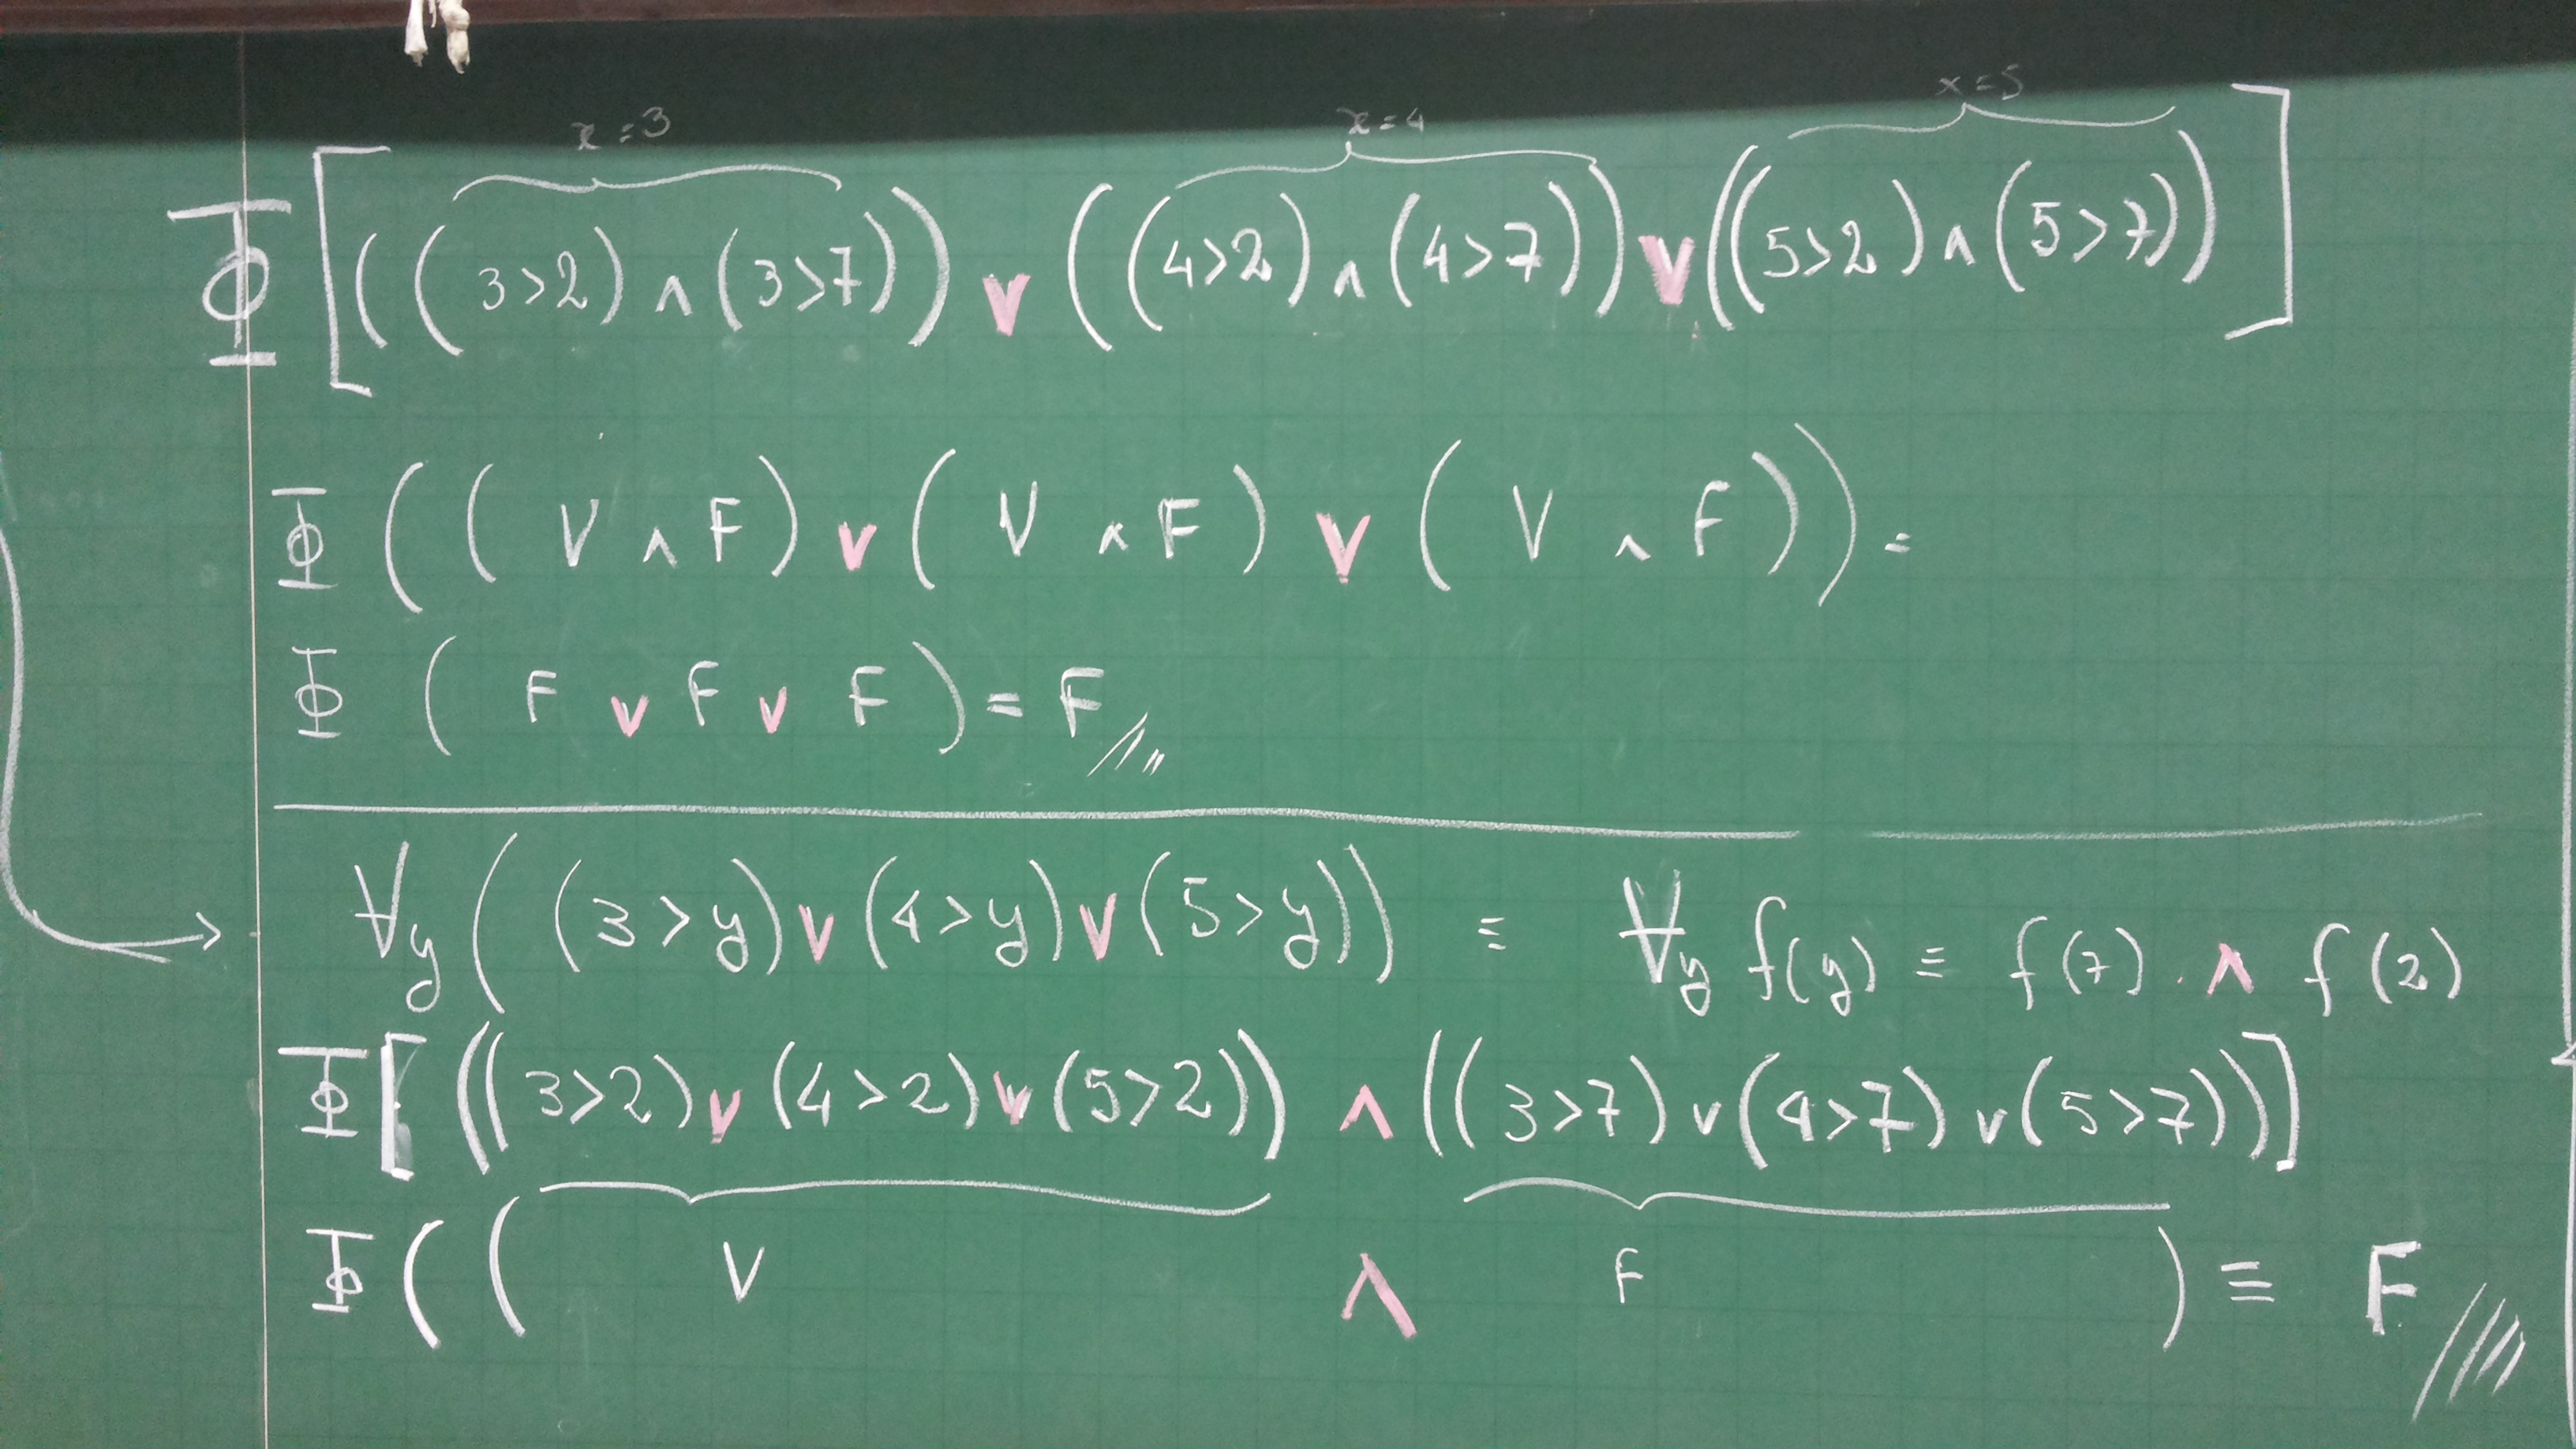 x = 3 x = 4 x = 5
Φ [ ( ( 3 > 2 ) ∧ ( 3 > 7 ) ) ∨ ( ( 4 > 2 ) ∧ ( 4 > 7 ) ) ∨ ( ( 5 > 2 ) ∧ ( 5 > 7 ) ) ]
Φ ( ( V ∧ F ) ∨ ( V ∧ F ) ∨ ( V ∧ F ) ) =
Φ ( F ∨ F ∨ F ) = F
∀y ( ( 3 > y ) ∨ ( 4 > y ) ∨ ( 5 > y ) ) ≡ ∀y f(y) ≡ f(7) . ∧ f(2)
Φ [ ( ( 3 > 2 ) ∨ ( 4 > 2 ) ∨ ( 5 > 2 ) ) ∧ ( ( 3 > 7 ) ∨ ( 4 > 7 ) ∨ ( 5 > 7 ) ) ]
Φ ( ( V ∧ F ) ≡ F